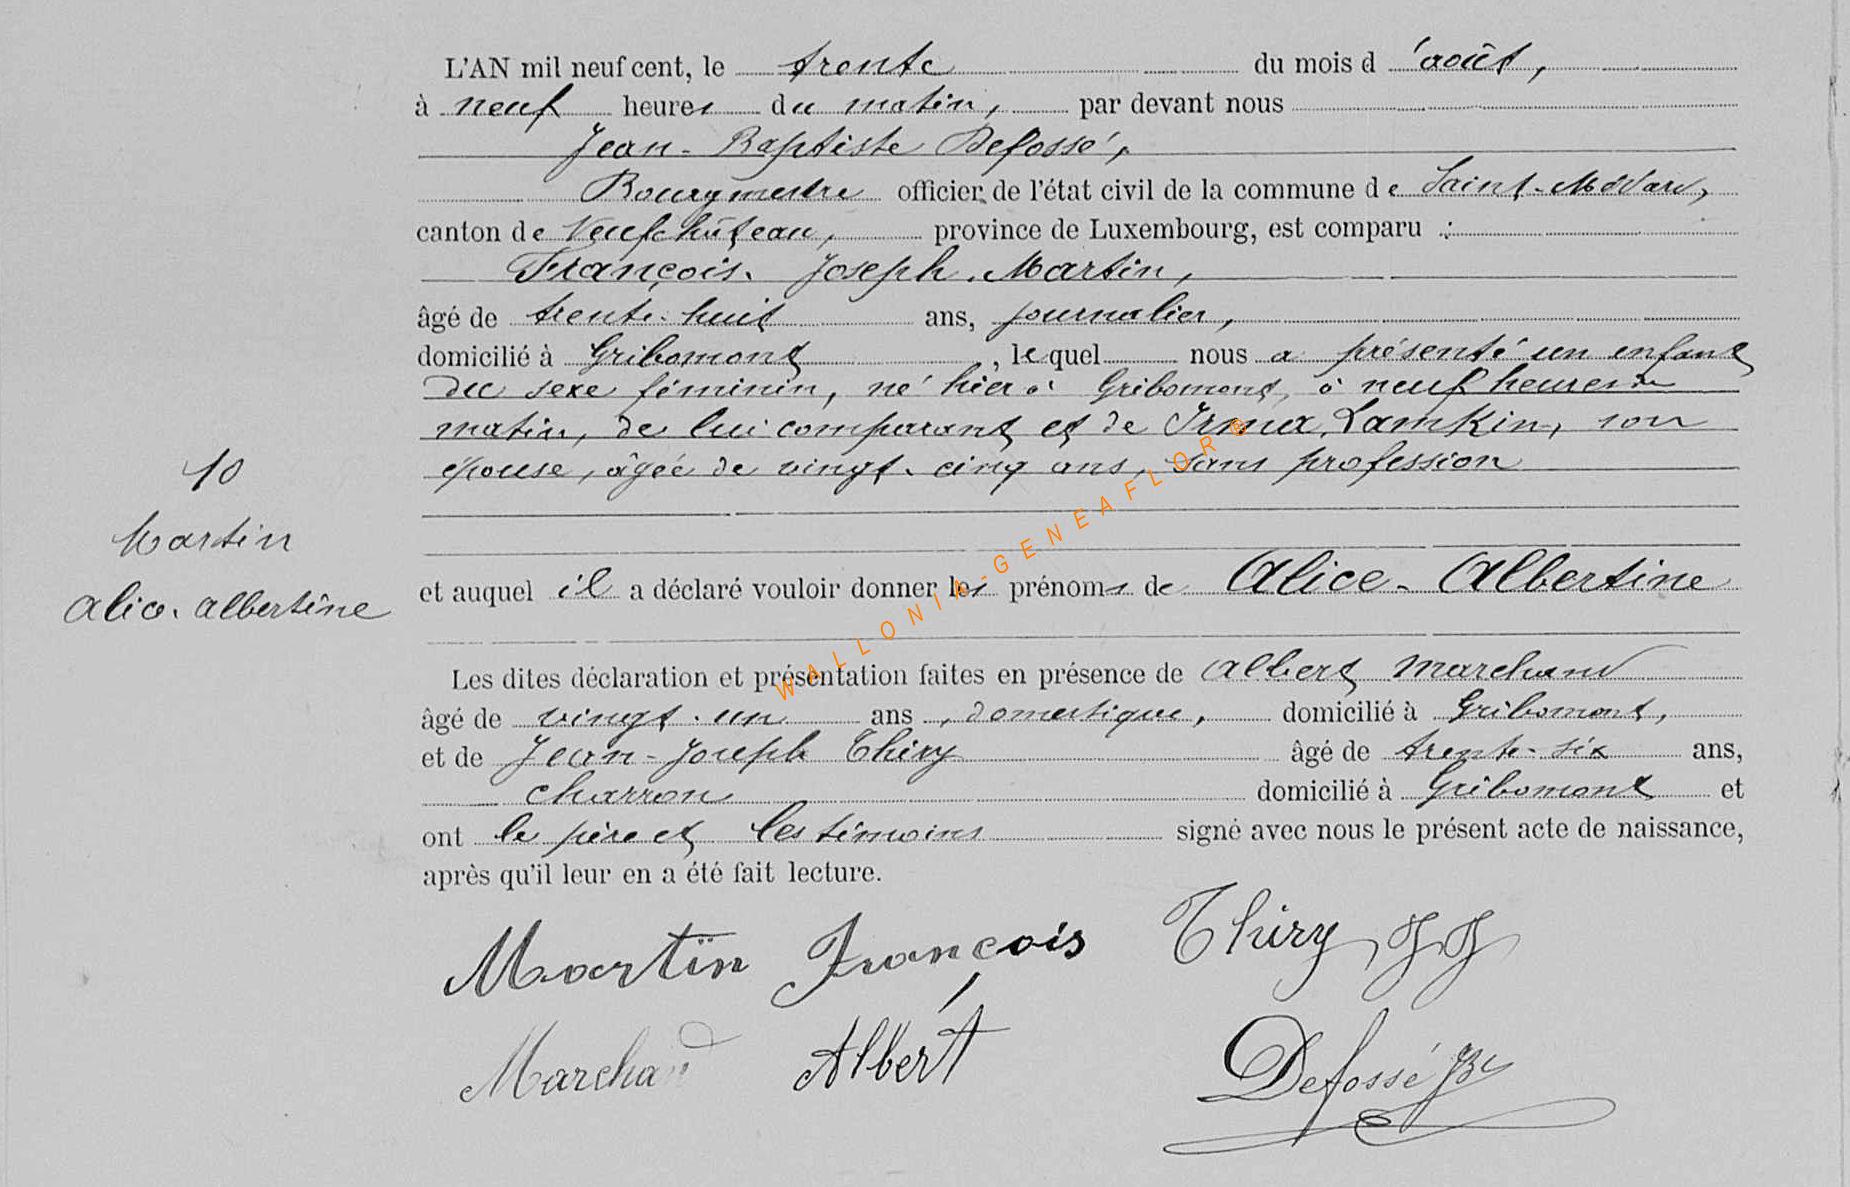 L'AN mil neuf cent, le trente du mois d'août,
à neuf heures du matin, par devant nous
Jean-Baptiste Defossé,
Bourgmestre officier de l'état civil de la commune de Saint-Médard,
canton de Neufchâteau, province de Luxembourg, est comparu :
François-Joseph Martin,
âgé de trente-huit ans, journalier,
domicilié à Gribomont, lequel nous a présenté un enfant
du sexe féminin, né hier à Gribomont, à neuf heures du
matin, de lui comparant et de Irma Lamkin, son
épouse, âgée de vingt-cinq ans, sans profession
10
Martin
Alice-Albertine
et auquel il a déclaré vouloir donner les prénoms de Alice-Albertine
Les dites déclaration et présentation faites en présence de Albert Marchand
âgé de vingt-un ans, domestique, domicilié à Gribomont,
et de Jean-Joseph Thiry âgé de trente-six ans,
charron domicilié à Gribomont et
ont le père et les témoins signé avec nous le présent acte de naissance,
après qu'il leur en a été fait lecture.
Martin François Thiry, J J
Marchand Albert Defossé JB
WALLONIA-GENEAFLORE